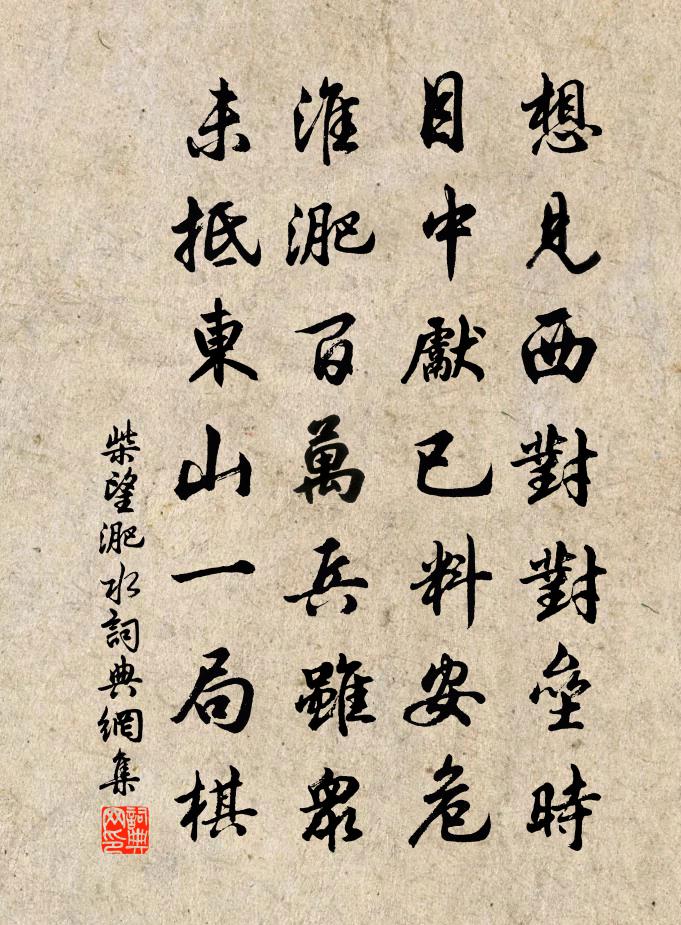 想見西對對壘時
目中獻已料安危
淮淝百萬兵雖眾
未抵東山一局棋
柴望淝水詞典網集
詞典网印